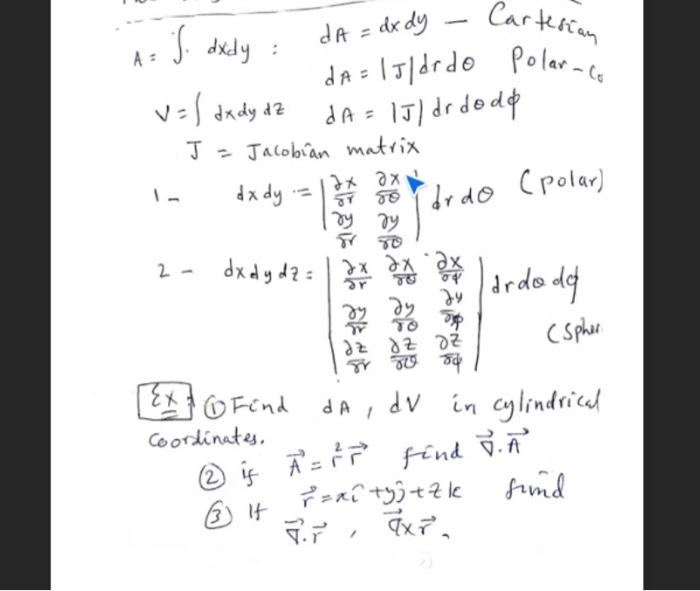 A = ∫ dxdy : dA = dxdy — Cartesian
dA = |J| dr dθ Polar - Co
V = ∫ dxdydz dA = |J| dr dθ dϕ
J = Jacobian matrix
1 - dxdy = | ∂x/∂r ∂x/∂θ ; ∂y/∂r ∂y/∂θ | dr dθ (polar)
2 - dxdydz = | ∂x/∂r ∂x/∂θ ∂x/∂ϕ ; ∂y/∂r ∂y/∂θ ∂y/∂ϕ ; ∂z/∂r ∂z/∂θ ∂z/∂ϕ | dr dθ dϕ
(Spher
Ex: ① Find dA, dV in cylindrical
Coordinates.
② if A⃗ = r² r⃗ find ∇⃗.A⃗
③ If r⃗ = xî + yĵ + zk find
∇⃗.r⃗ , ∇⃗×r⃗.